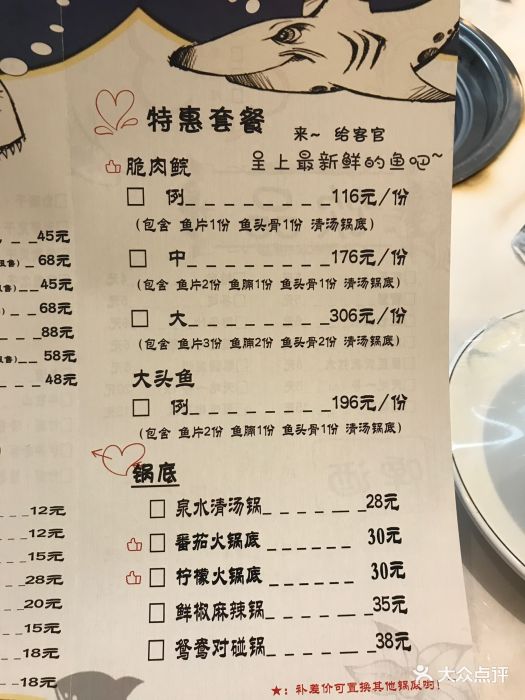 特惠套餐
来~ 给客官
呈上最新鲜的鱼吧~
脆肉鲩
例________116元/份
(包含 鱼片1份 鱼头骨1份 清汤锅底)
中________176元/份
(包含 鱼片2份 鱼腩1份 鱼头骨1份 清汤锅底)
大________306元/份
(包含 鱼片3份 鱼腩2份 鱼头骨2份 清汤锅底)
大头鱼
例________196元/份
(包含 鱼片2份 鱼腩1份 鱼头骨1份 清汤锅底)
锅底
泉水清汤锅______28元
番茄火锅底______30元
柠檬火锅底______30元
鲜椒麻辣锅______35元
鸳鸯对碰锅______38元
★:补差价可置换其他锅底哟!
45元
68元
45元
68元
88元
58元
48元
12元
12元
15元
28元
20元
15元
18元
18元
大众点评